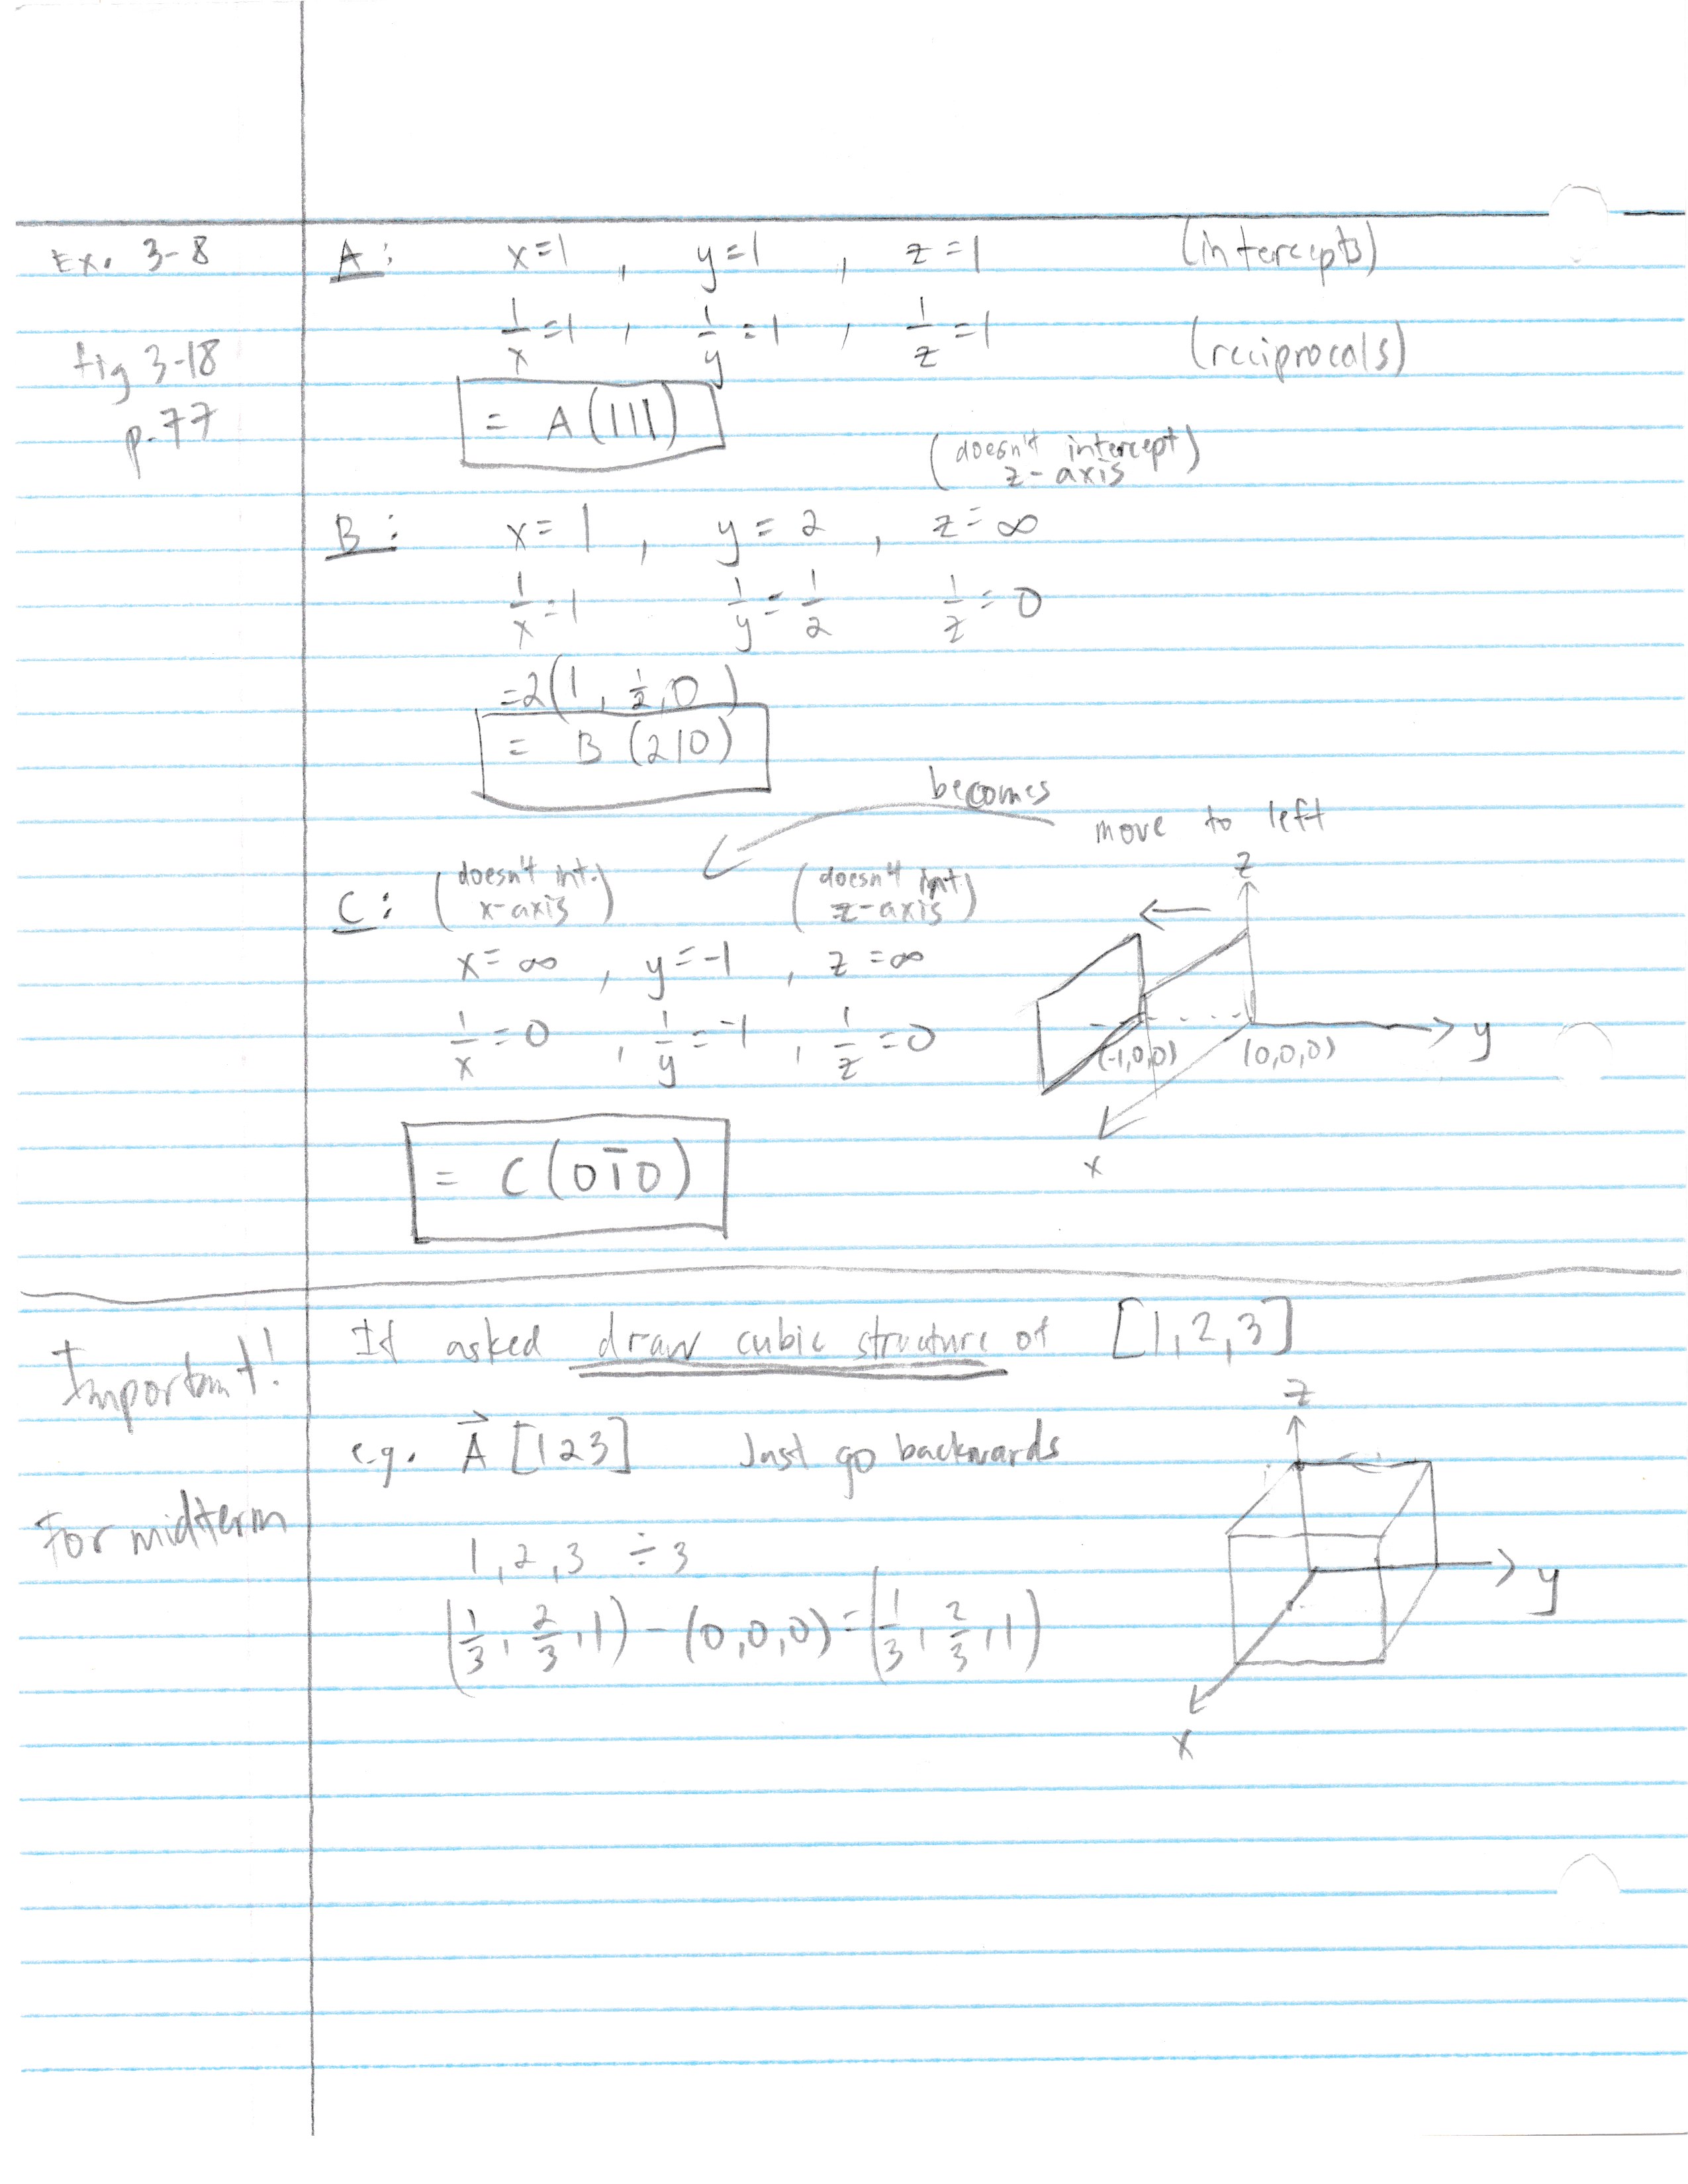 Ex. 3-8
fig 3-18
p.77
A: x=1 , y=1 , z=1 (intercepts)
1/x=1 , 1/y=1 , 1/z=1 (reciprocals)
= A(111)
(doesn't intercept z-axis)
B: x=1 , y=2 , z=∞
1/x=1 1/y=1/2 1/z=0
=2(1, 1/2, 0)
= B (210)
becomes
move to left
C: (doesn't int. x-axis) (doesn't int z-axis)
x=∞ , y=-1 , z=∞
1/x=0 , 1/y=-1 , 1/z=0
z
y
(-1,0,0) (0,0,0)
x
= C(01̄0)
Important!
For midterm
If asked draw cubic structure of [1,2,3]
e.g. A⃗ [123] Just go backwards
1,2,3 ÷3
(1/3, 2/3, 1) - (0,0,0) = (1/3, 2/3, 1)
z
y
x